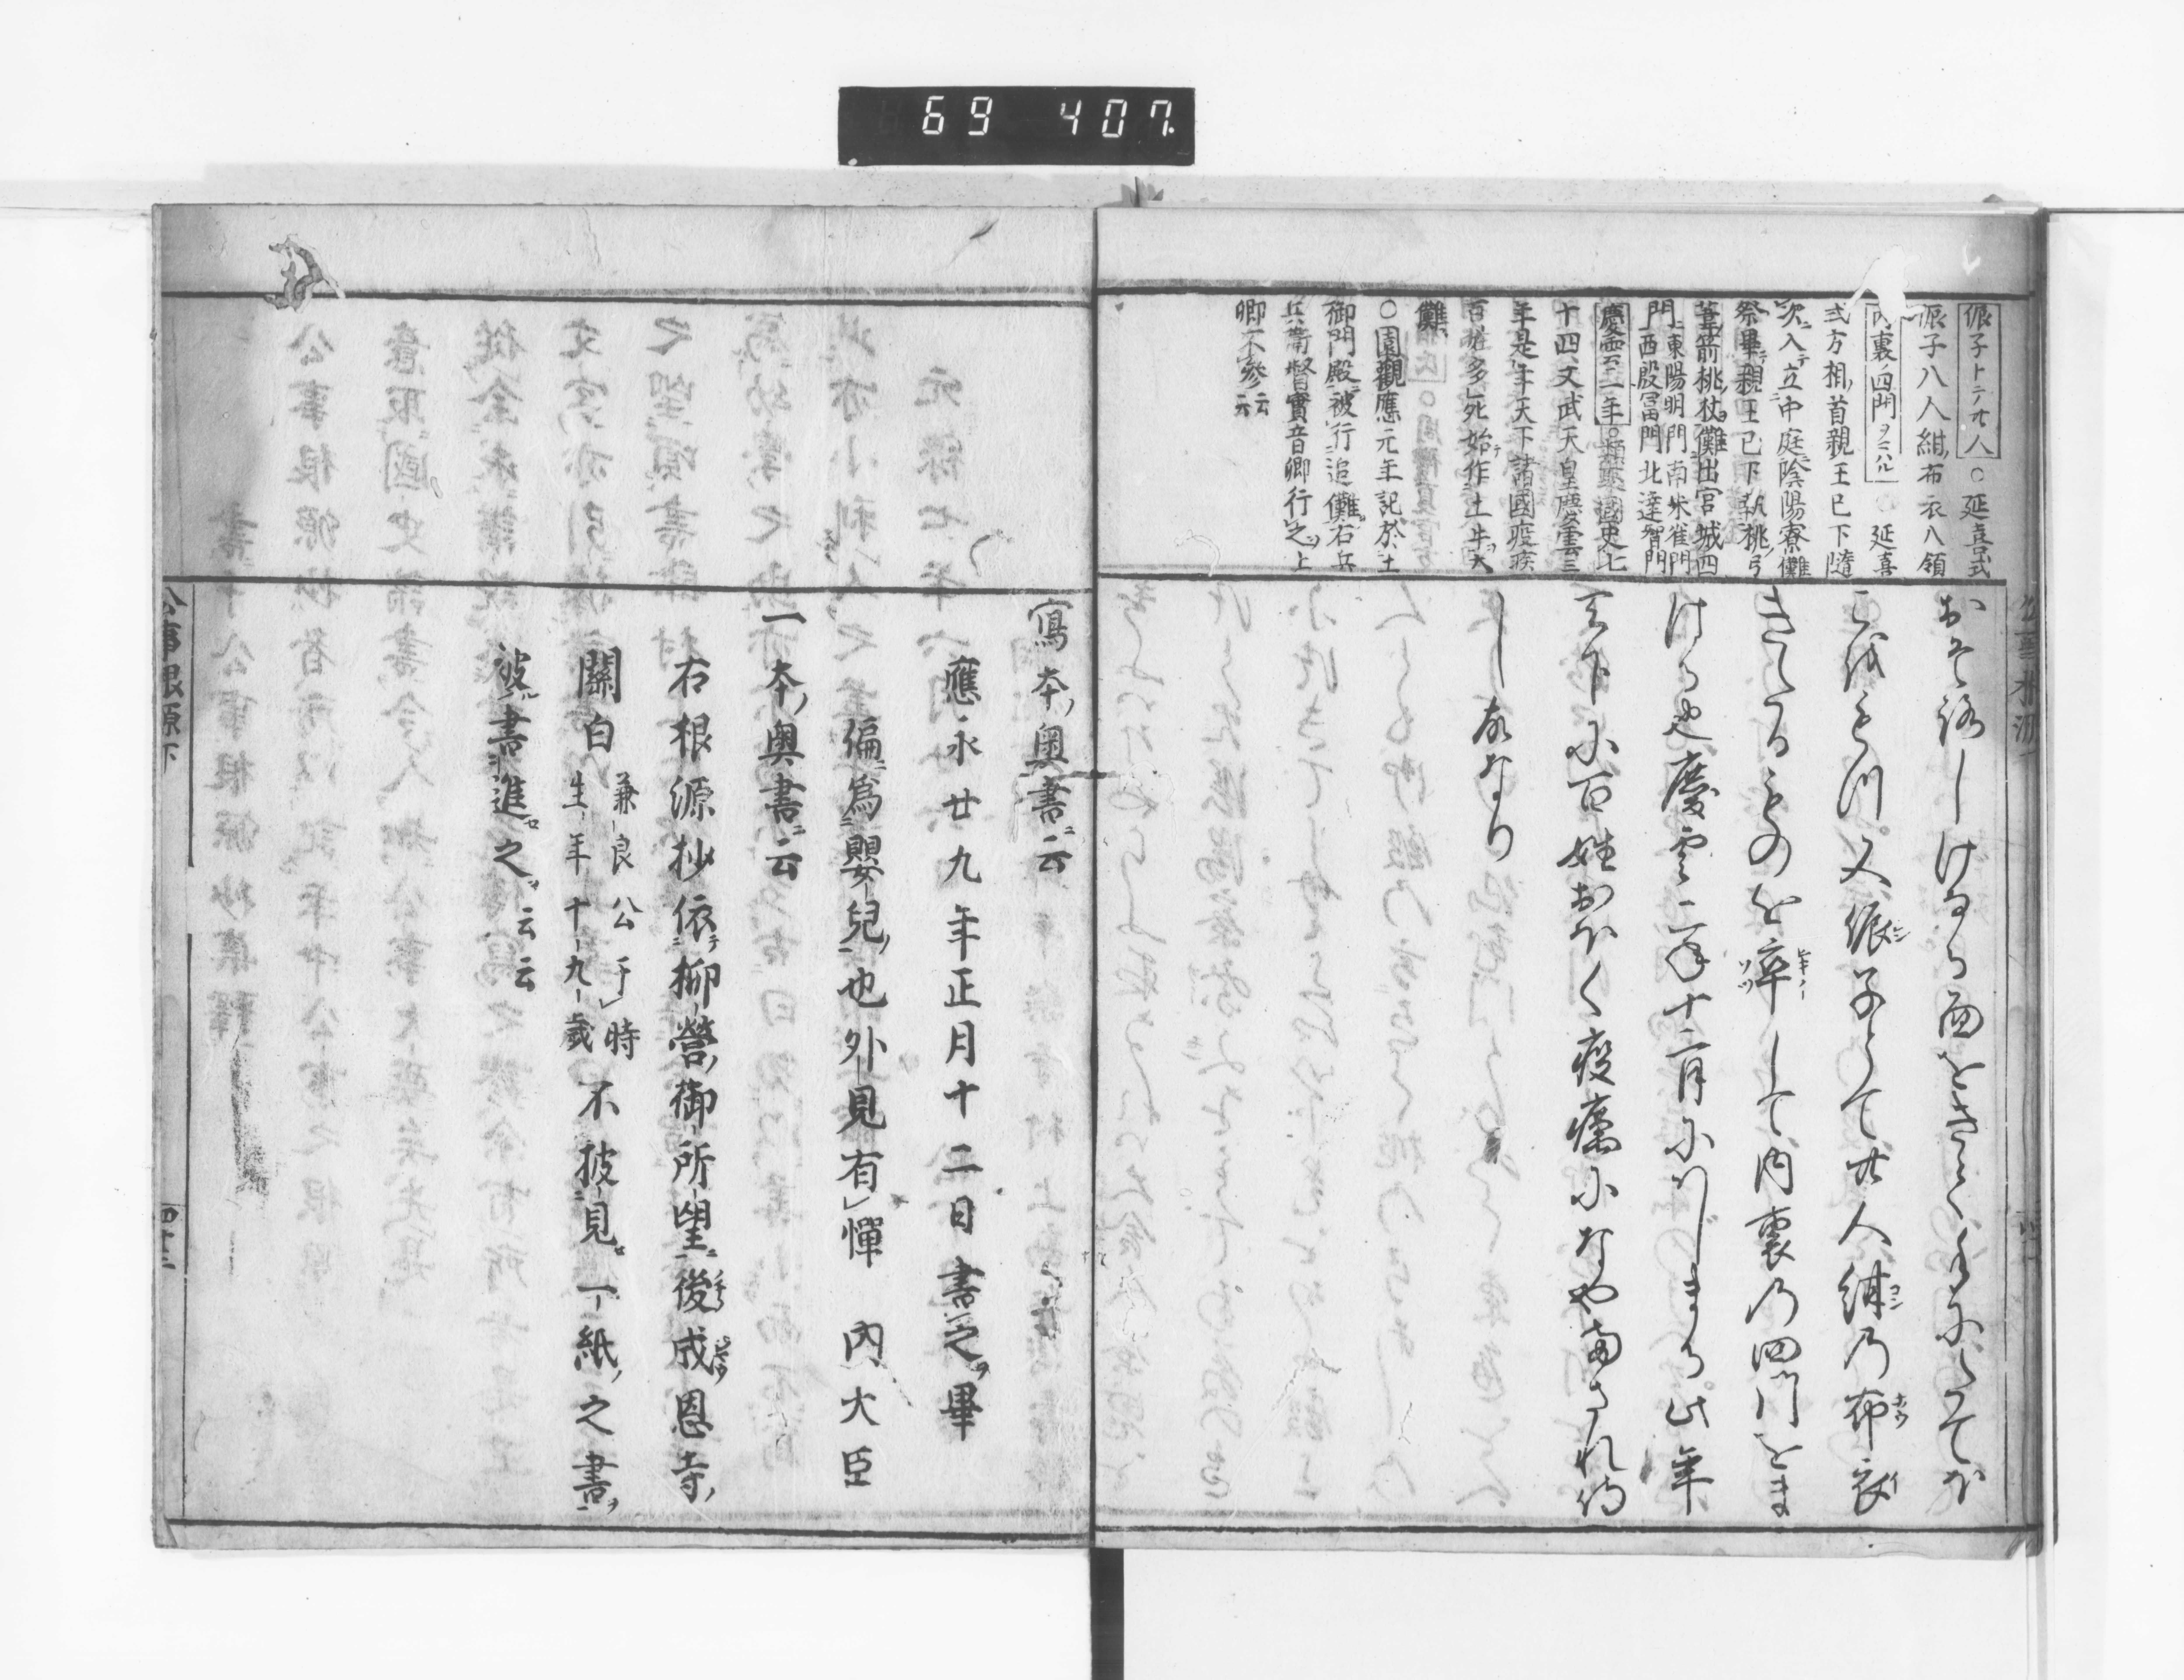 69 407
侲子トテ廿人 ○延喜式
侲子八人紺布衣八領
内裏ノ四門ヲマハル ○延喜
式方相首親王已下隨
次入立中庭陰陽寮儺
祭畢親王已下執桃弓
葦箭桃杖儺出宮城四
門東陽明門南朱雀門
西殷富門北達智門
慶雲二年○類聚國史七
十四文武天皇慶雲三
年是年天下諸國疫疾
百姓多死始作土牛大
儺
○園觀應元年記於土
御門殿被行追儺右兵
兵衞督實音卿行之上
卿不參云云
おそろしけなる面をきて手にたてほ
こをもつ又侲子とて廿人紺の布衣
きたるものを率して内裏の四門をま
はる也慶雲二年十二月にはしまる此年
天下に百姓おほく疫癘になやまされ侍
し故なり
寫本ノ奥書ニ云
應永廿九年正月十二日書之畢
偏爲嬰兒也外見有憚 内大臣
一本ノ奥書ニ云
右根源抄依柳營御所望後成恩寺
關白兼良公于時生年十九歲不披見一紙之書
被書進之云云
公事根源下
四十三